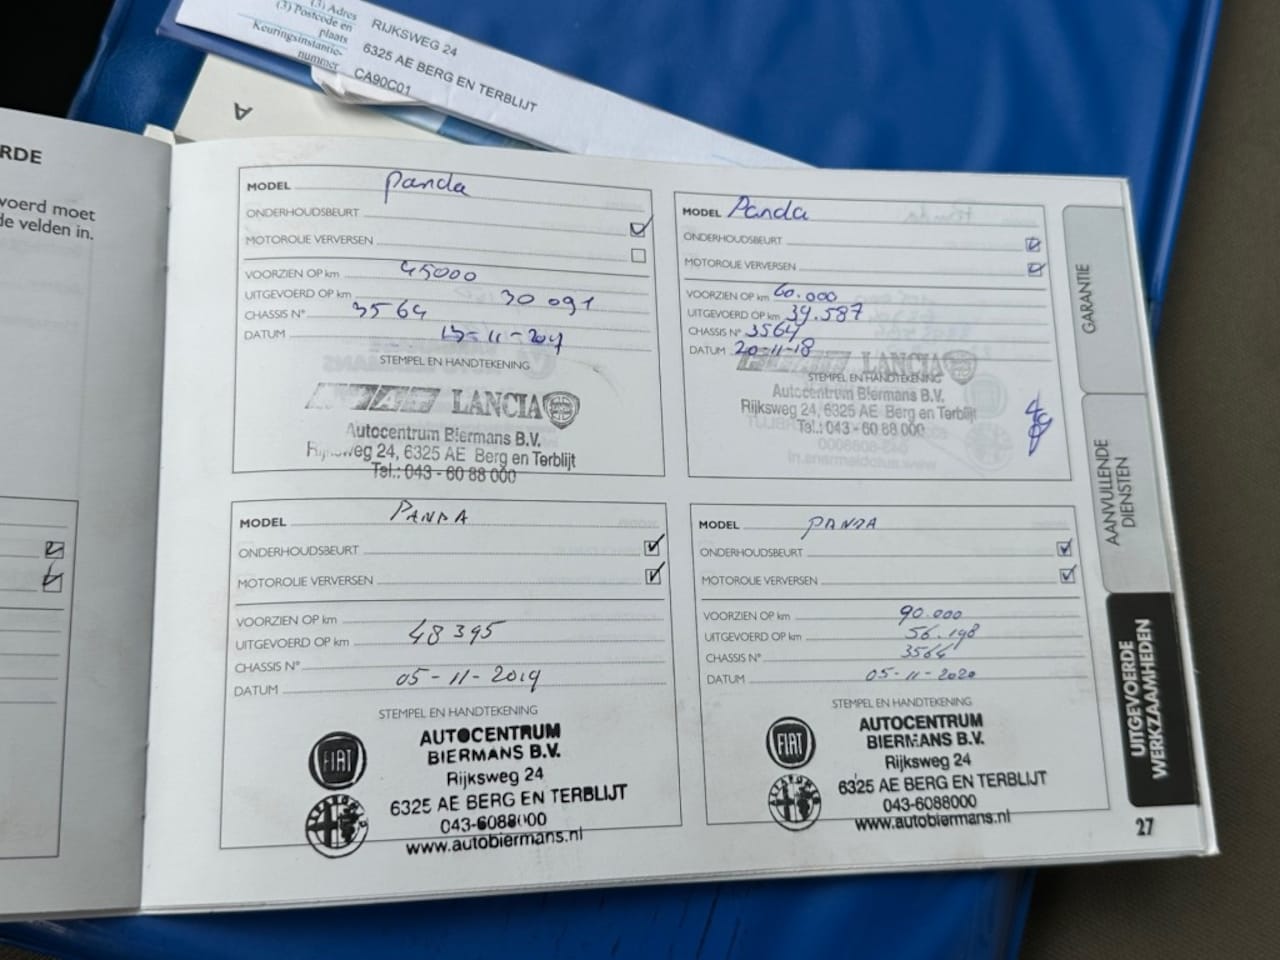 (3) Adres
(3) Postcode en
plaats
Keuringsinstantie-
nummer
RIJKSWEG 24
6325 AE BERG EN TERBLIJT
CA90C01
A
RDE
voerd moet
de velden in.
MODEL Panda
ONDERHOUDSBEURT
MOTOROLIE VERVERSEN
VOORZIEN OP km 45000
UITGEVOERD OP km 30 091
CHASSIS N° 3564
DATUM
STEMPEL EN HANDTEKENING
FIAT LANCIA
Autocentrum Biermans B.V.
Rijksweg 24, 6325 AE Berg en Terblijt
Tel.: 043 - 60 88 000
MODEL Panda
ONDERHOUDSBEURT
MOTOROLIE VERVERSEN
VOORZIEN OP km 60.000
UITGEVOERD OP km 39.587
CHASSIS N° 3564
DATUM 20-11-18
FIAT LANCIA
STEMPEL EN HANDTEKENING
Autocentrum Biermans B.V.
Rijksweg 24, 6325 AE Berg en Terblijt
Tel.: 043 - 60 88 000
MODEL PANDA
ONDERHOUDSBEURT
MOTOROLIE VERVERSEN
VOORZIEN OP km
UITGEVOERD OP km 48395
CHASSIS N°
DATUM 05-11-2019
STEMPEL EN HANDTEKENING
FIAT
AUTOCENTRUM
BIERMANS B.V.
Rijksweg 24
6325 AE BERG EN TERBLIJT
043-6088000
www.autobiermans.nl
MODEL PANDA
ONDERHOUDSBEURT
MOTOROLIE VERVERSEN
VOORZIEN OP km 90.000
UITGEVOERD OP km 56.198
CHASSIS N° 3564
DATUM 05-11-2020
STEMPEL EN HANDTEKENING
FIAT
AUTOCENTRUM
BIERMANS B.V.
Rijksweg 24
6325 AE BERG EN TERBLIJT
043-6088000
www.autobiermans.nl
GARANTIE
AANVULLENDE
DIENSTEN
UITGEVOERDE
WERKZAAMHEDEN
27